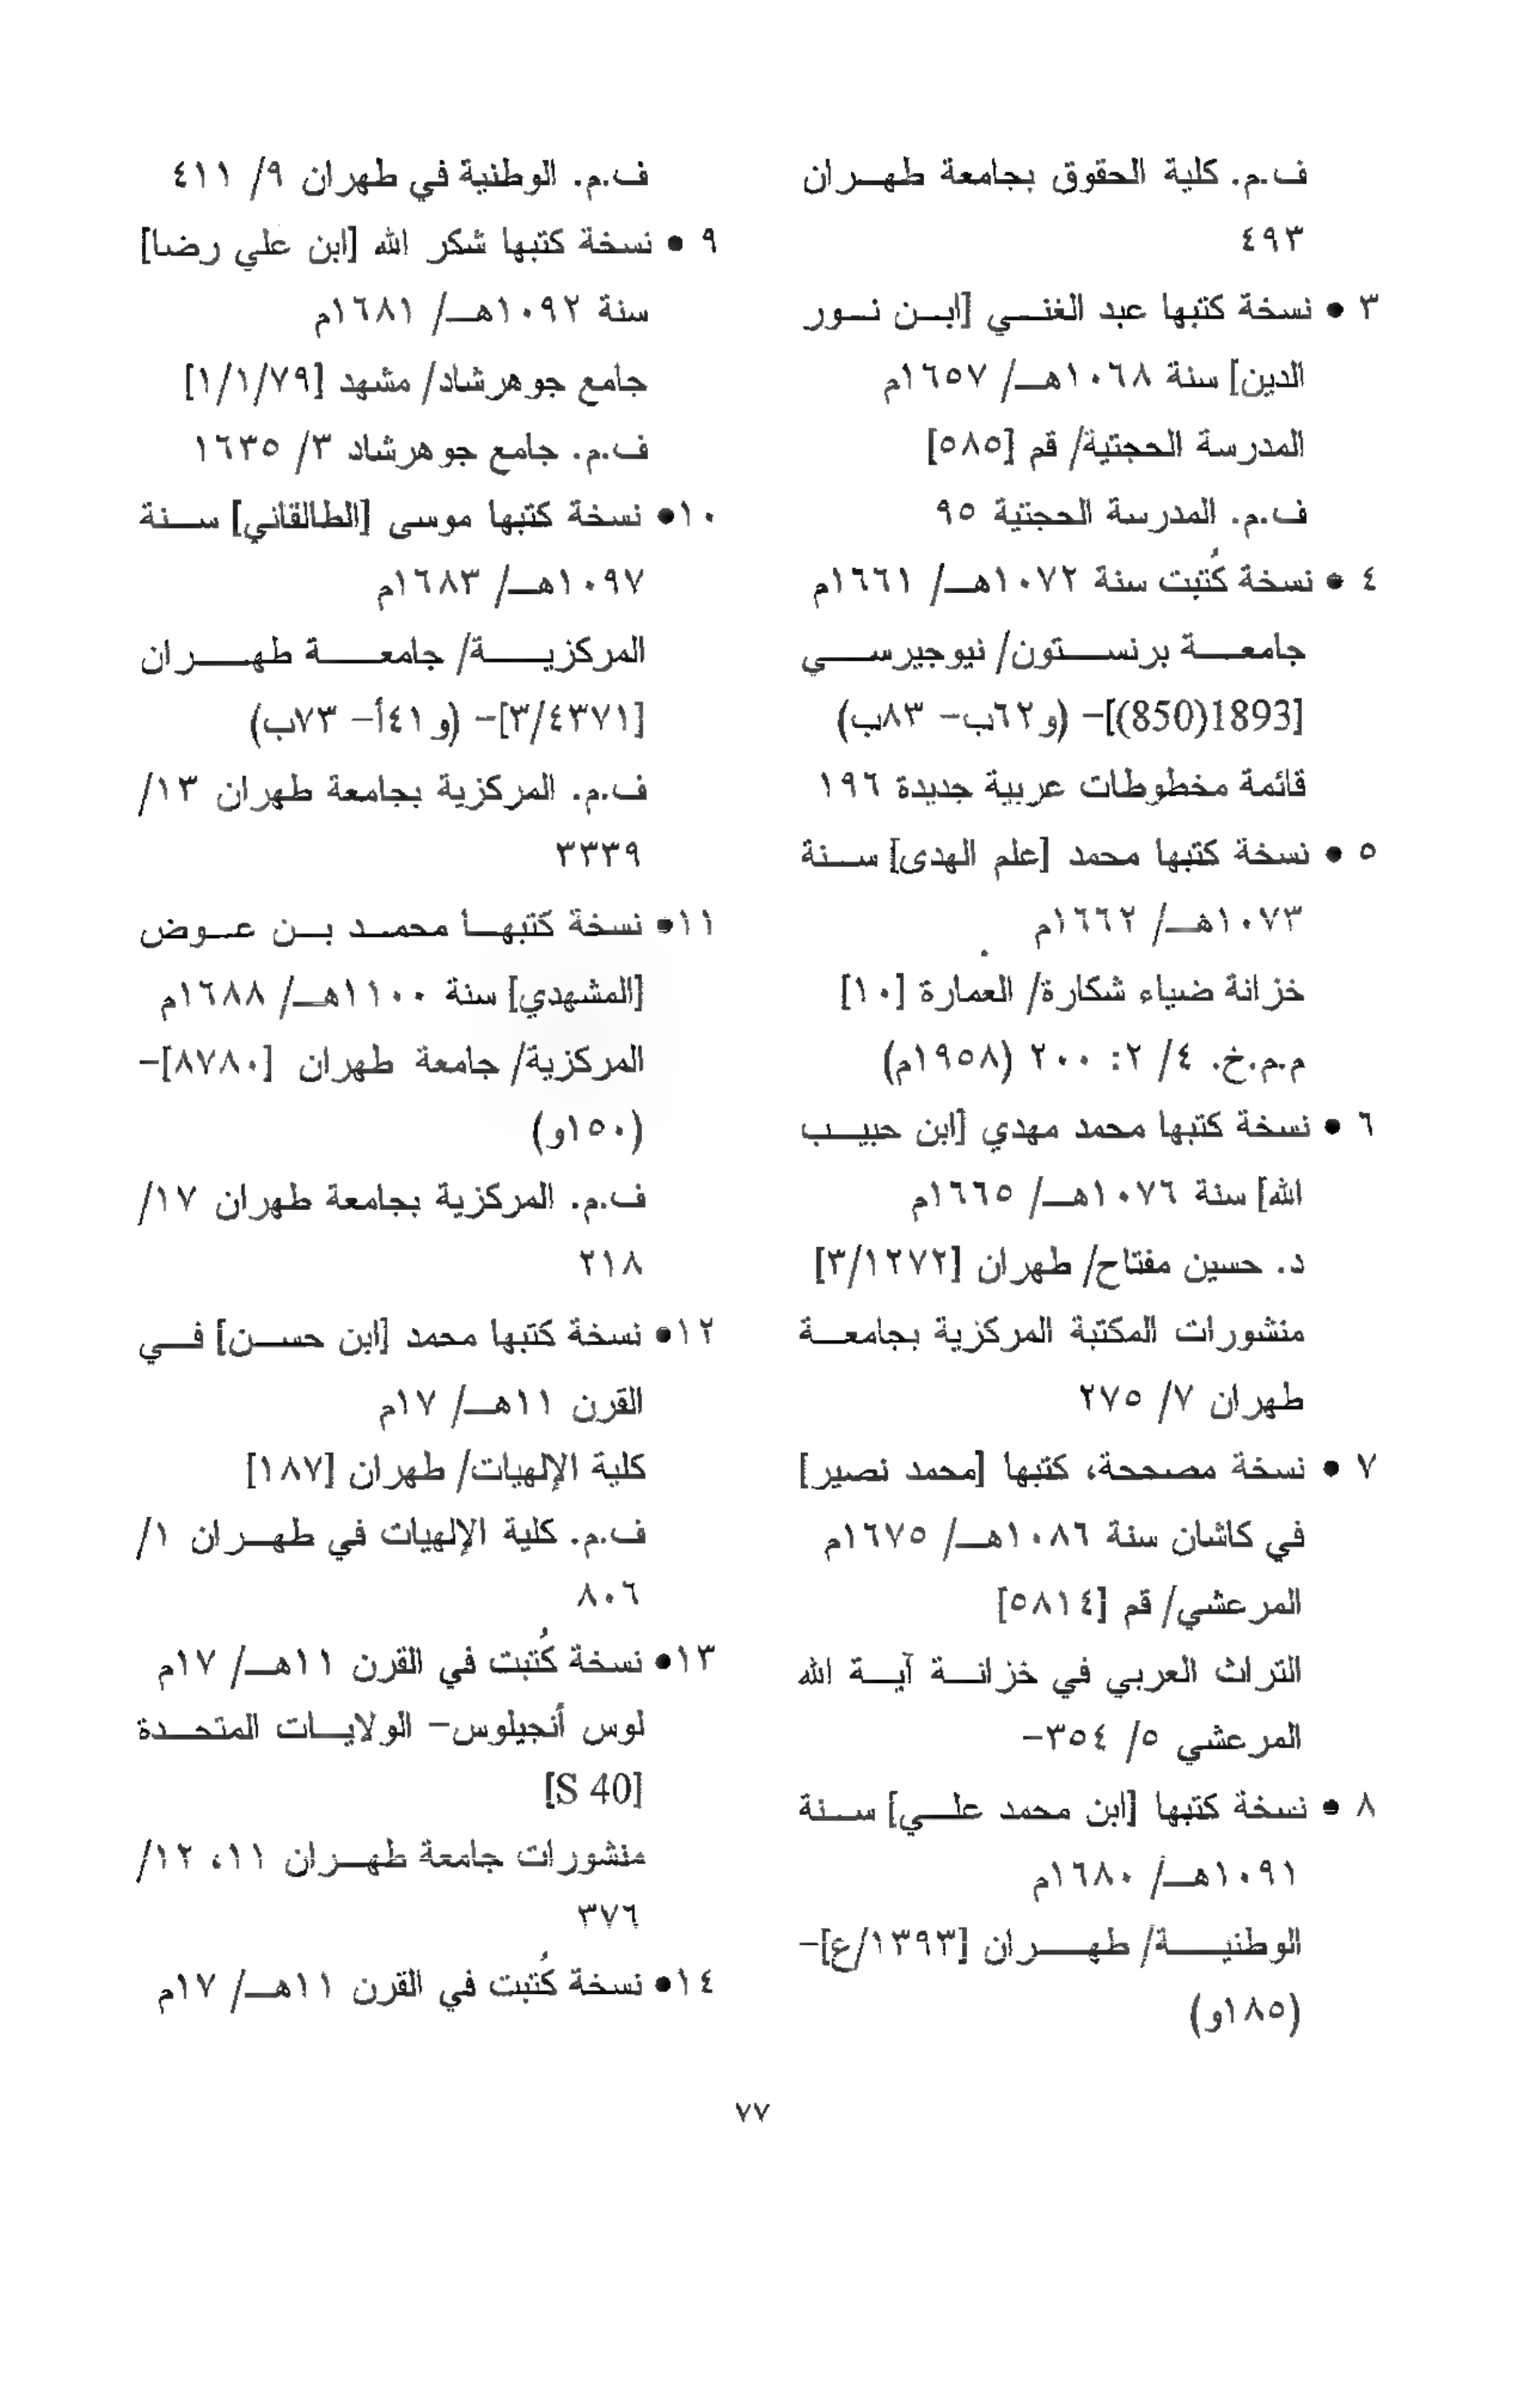 ف.م. كلية الحقوق بجامعة طهـران
٤٩٣
٣ • نسخة كتبها عبد الغنـي [ابـن نـور
الدين] سنة ١٠٦٨هـ/ ١٦٥٧م
المدرسة الحجتية/ قم [٥٨٥]
ف.م. المدرسة الحجتية ٩٥
٤ • نسخة كُتبت سنة ١٠٧٢هـ/ ١٦٦١م
جامعـة برنسـتون/ نيوجيرسـي
[1893(850)]- (و٦٢ب- ٨٣ب)
قائمة مخطوطات عربية جديدة ١٩٦
٥ • نسخة كتبها محمد [علم الهدى] سـنة
١٠٧٣هـ/ ١٦٦٢م
خزانة ضياء شكارة/ العمارة [١٠]
م.م.خ. ٤/ ٢: ٢٠٠ (١٩٥٨م)
٦ • نسخة كتبها محمد مهدي [ابن حبيـب
الله] سنة ١٠٧٦هـ/ ١٦٦٥م
د. حسين مفتاح/ طهران [٣/١٢٧٢]
منشورات المكتبة المركزية بجامعـة
طهران ٧/ ٢٧٥
٧ • نسخة مصححة، كتبها [محمد نصير]
في كاشان سنة ١٠٨٦هـ/ ١٦٧٥م
المرعشي/ قم [٥٨١٤]
التراث العربي في خزانـة آيـة الله
المرعشي ٥/ ٣٥٤-
٨ • نسخة كتبها [ابن محمد علـي] سـنة
١٠٩١هـ/ ١٦٨٠م
الوطنيـة/ طهـران [١٣٩٣/ع]-
(١٨٥و)
ف.م. الوطنية في طهران ٩/ ٤١١
٩ • نسخة كتبها شكر الله [ابن علي رضا]
سنة ١٠٩٢هـ/ ١٦٨١م
جامع جوهرشاد/ مشهد [١/١/٧٩]
ف.م. جامع جوهرشاد ٣/ ١٦٣٥
١٠• نسخة كتبها موسى [الطالقاني] سـنة
١٠٩٧هـ/ ١٦٨٣م
المركزيـة/ جامعـة طهـران
[٣/٤٣٧١]- (و٤١أ- ٧٣ب)
ف.م. المركزية بجامعة طهران ١٣/
٣٣٣٩
١١• نسخة كتبهـا محمـد بـن عـوض
[المشهدي] سنة ١١٠٠هـ/ ١٦٨٨م
المركزية/ جامعة طهران [٨٧٨٠]-
(١٥٠و)
ف.م. المركزية بجامعة طهران ١٧/
٢١٨
١٢• نسخة كتبها محمد [ابن حسـن] فـي
القرن ١١هـ/ ١٧م
كلية الإلهيات/ طهران [١٨٧]
ف.م. كلية الإلهيات في طهـران ١/
٨٠٦
١٣• نسخة كُتبت في القرن ١١هـ/ ١٧م
لوس أنجيلوس- الولايـات المتحـدة
[S 40]
منشورات جامعة طهـران ١١، ١٢/
٣٧٦
١٤• نسخة كُتبت في القرن ١١هـ/ ١٧م
٧٧